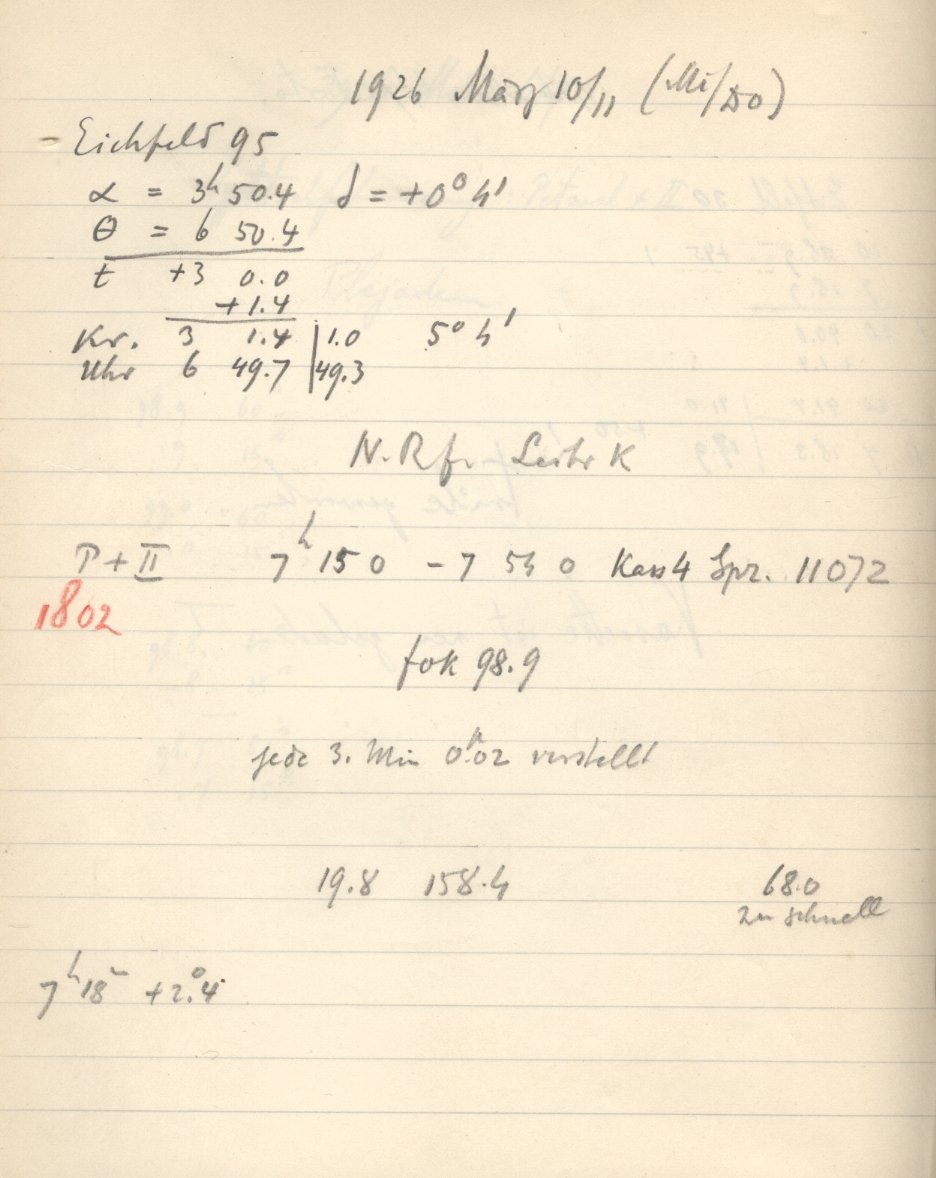 1926 März 10/11 (Mi/Do)
- Eichfeld 95
α = 3h 50.4 δ = +0° 4'
θ = 6 50.4
t +3 0.0
+1.4
Kr. 3 1.4 | 1.0 5° 4'
Uhr 6 49.7 | 49.3
N. Rfr Leitr K
P + II 7h 15 0 - 7 54 0 Kass 4 Spr. 11072
1802
fok 98.9
jede 3. Min 0.R02 verstellt
19.8 158.4 68.0
zu schnell
7h 18m +2.°4